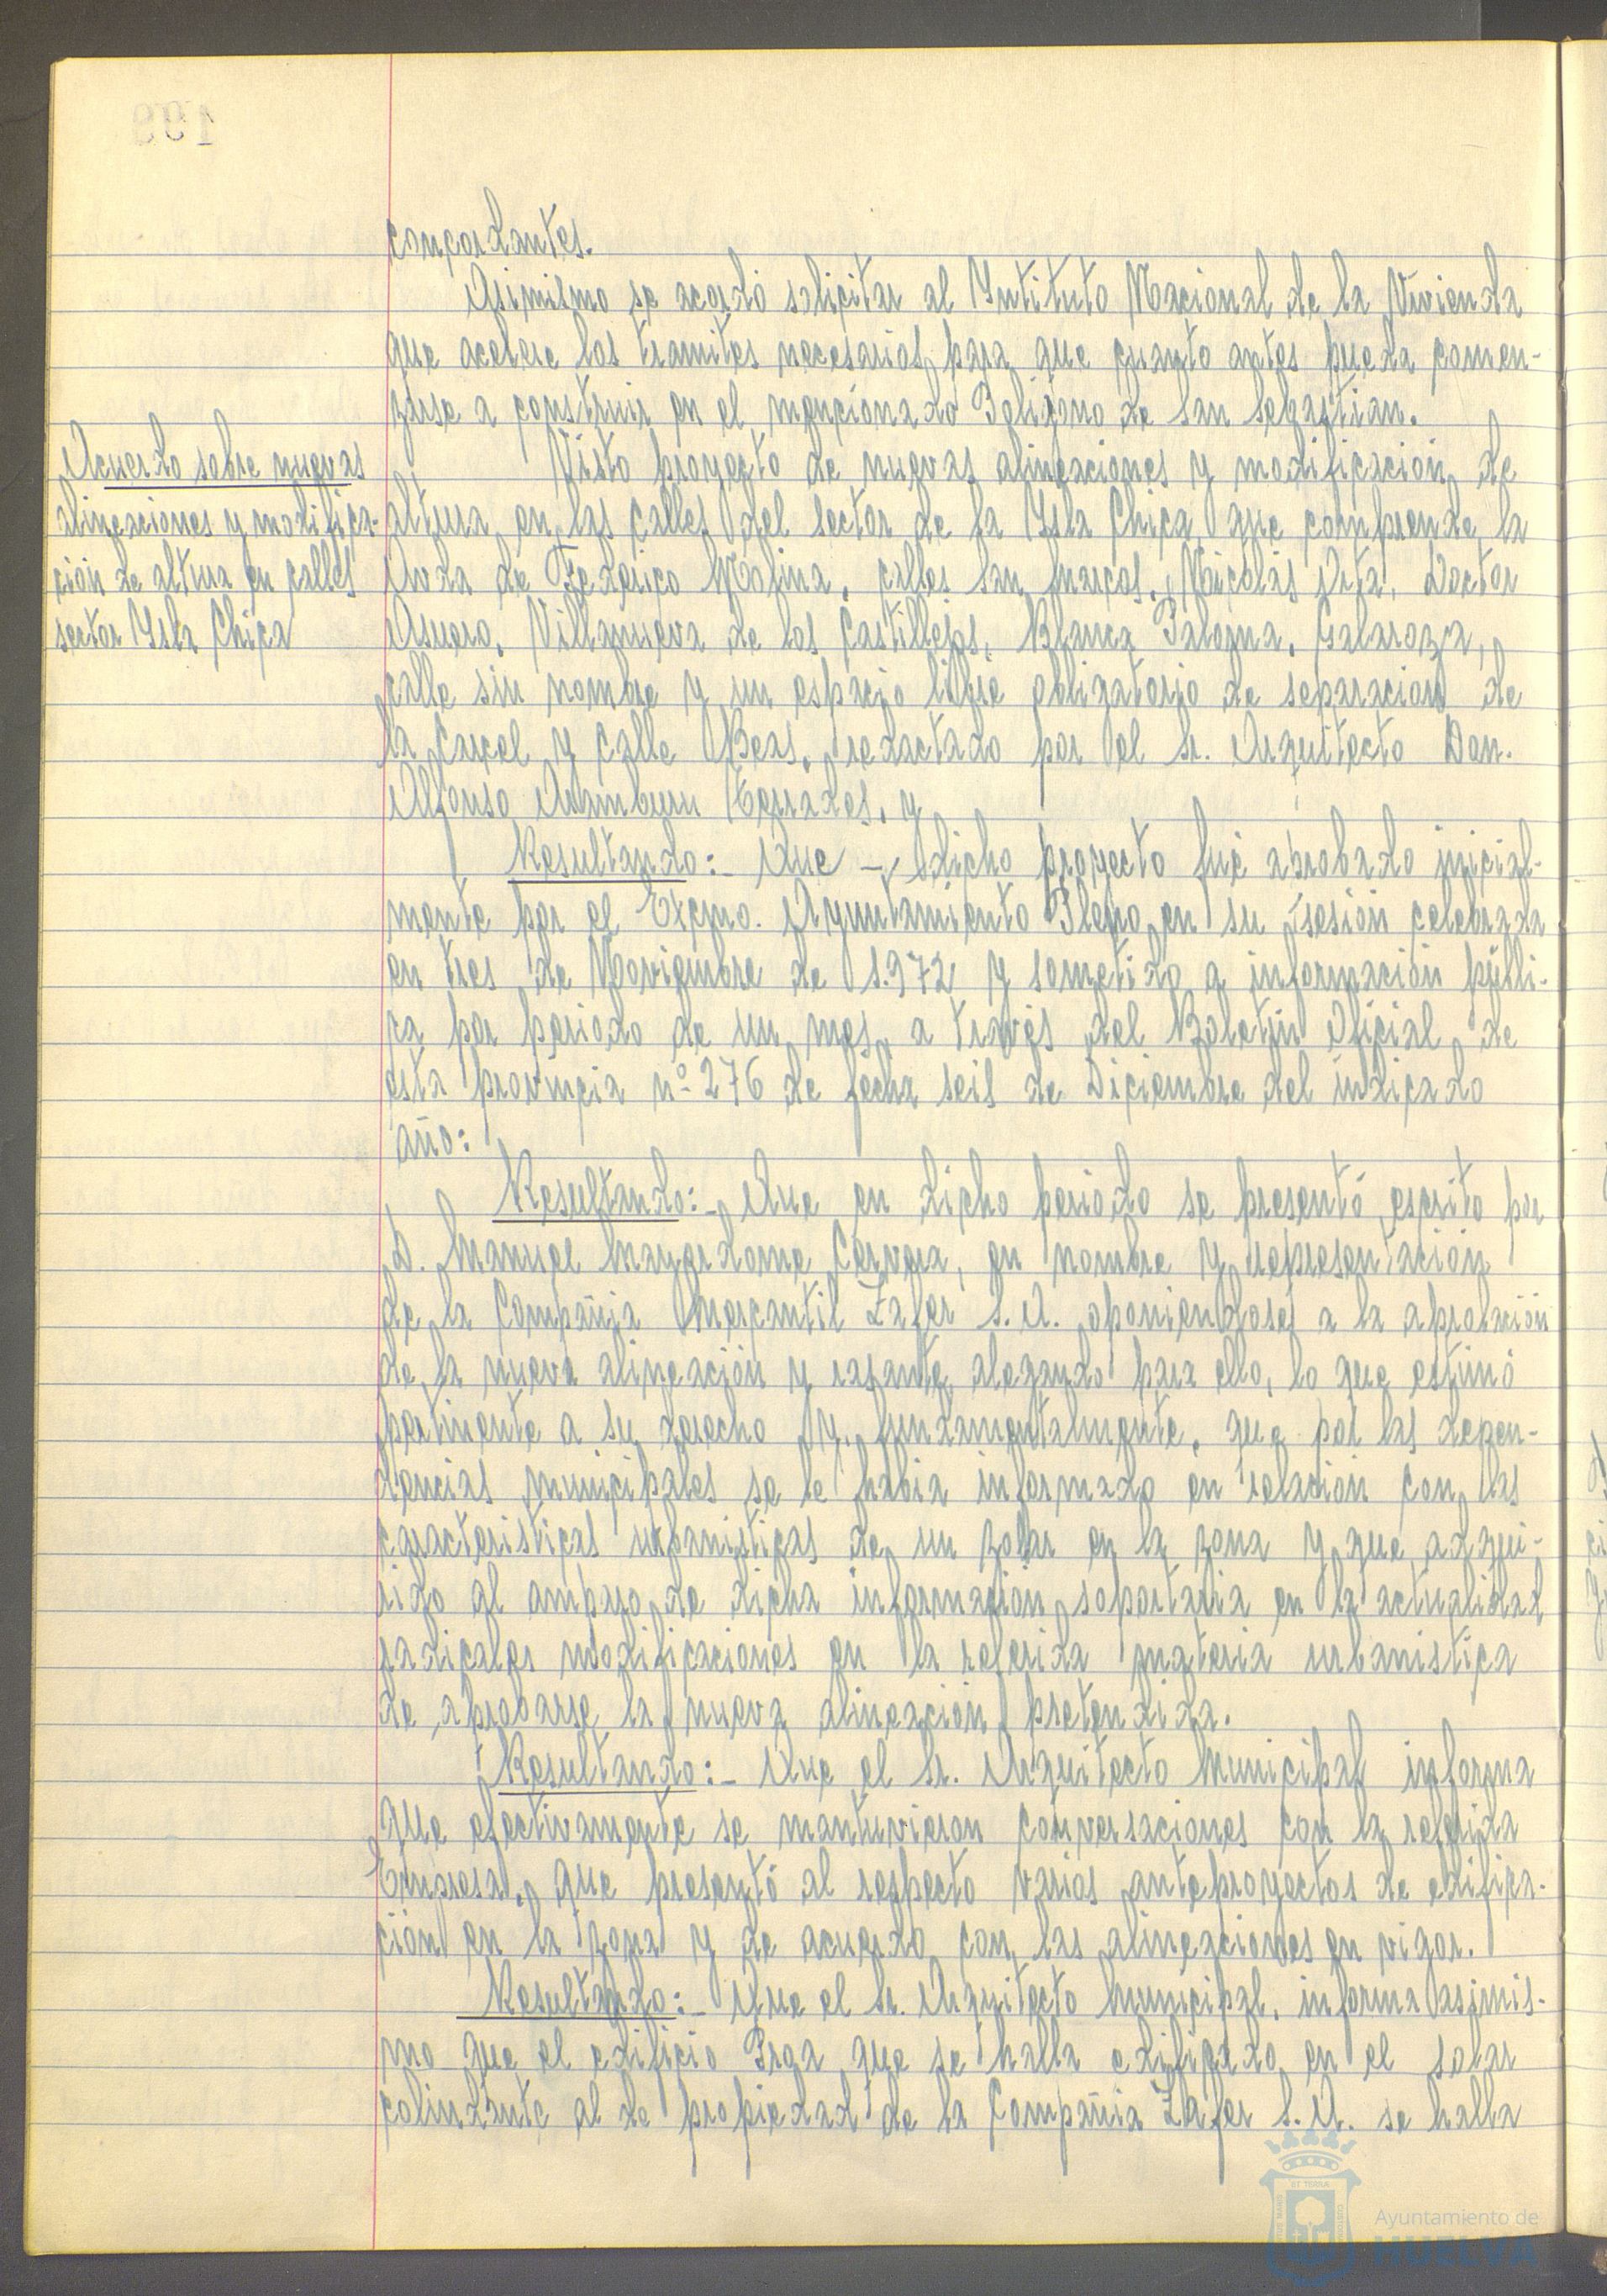 concordantes.
Asimismo se acordó solicitar al Yntituto Nacional de la Vivienda
que acelere los tramites necesarios para que cuanto antes pueda comen-
zarse a construir en el mencionado Poligono de San Sebastian.
Acuerdo sobre nuevas
alineaciones y modifica-
ción de altura en calles
sector Ysla Chica
Visto proyecto de nuevas alineaciones y modificación de
altura en las calles del sector de la Ysla Chica que comprende la
Avda de Federico Molina, calles San Marcos, Nicolás Orta, Doctor
Asuero, Villanueva de los Castillejos, Blanca Paloma, Galaroza,
calle sin nombre y un espacio libre obligatorio de separacion de
la Carcel y calle Beas, redactado por el Sr. Arquitecto Don.
Alfonso Aramburu Terrades, y
Resultando:- Que - dicho proyecto fué aprobado inicial-
mente por el Excmo. Ayuntamiento Pleno en su sesión celebrada
en tres de Noviembre de 1.972 y sometido a información públi-
ca por periodo de un mes, a través del Boletín Oficial de
esta provincia nº 276 de fecha seis de Diciembre del indicado
año:
Resultando:- Que en dicho periodo se presentó escrito por
D. Manuel Mayordomo Cervera, en nombre y representación
de la Compañia Mercantil Zafer S.A. oponiendose a la aprobación
de la nueva alineación y rasante alegando para ello, lo que estimó
pertinente a su derecho y, fundamentalmente, que por las depen-
dencias municipales se le habia informado en relación con las
caracteristicas urbanisticas de un solar en la zona y que adqui-
rido al amparo de dicha información soportaria en la actualidad
radicales modificaciones en la referida materia urbanistica
de aprobarse la nueva alineación pretendida.
Resultando:- Que el Sr. Arquitecto Municipal informa
que efectivamente se mantuvieron conversaciones con la referida
Empresa, que presentó al respecto varios anteproyectos de edifica-
ción en la zona y de acuerdo con las alineaciones en vigor.
Resultando:- Que el Sr. Arquitecto Municipal, informa asimis-
mo que el edificio Prga que se halla edificado en el solar
colindante al de propiedad de la Compañia Zafer S.A. se halla
Ayuntamiento de
HUELVA